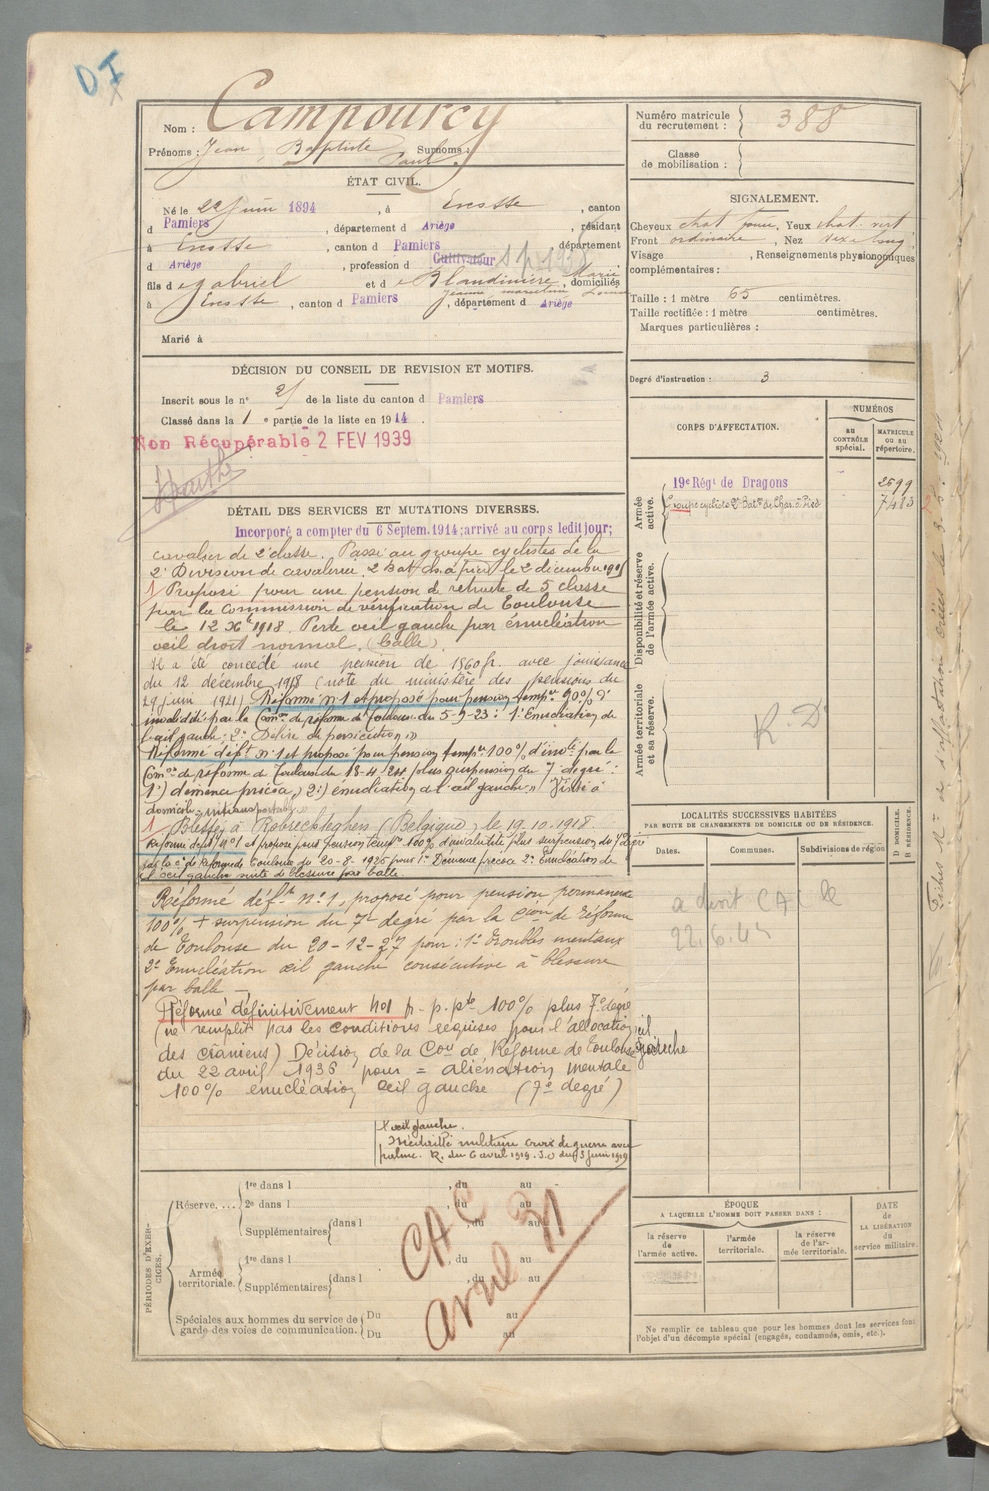 DI
Nom : Campourcy
Prénoms : Jean, Baptiste Surnoms :
Paul
ÉTAT CIVIL.
Né le 22 Juin 1894, à Escosse, canton
d Pamiers, département d Ariège, résidant
à Escosse, canton d Pamiers département
d Ariège, profession d Cultivateur
fils d e Gabriel et d e Blandinière Marie, domiciliés
à Escosse, canton d Pamiers, département d Ariège
Marié à
DÉCISION DU CONSEIL DE REVISION ET MOTIFS.
Inscrit sous le n° 21 de la liste du canton d Pamiers
Classé dans la 1 e partie de la liste en 1914.
Non Récupérable 2 FEV 1939
DÉTAIL DES SERVICES ET MUTATIONS DIVERSES.
Incorporé a compter du 6 Septem. 1914; arrivé au corps ledit jour;
cavalier de 2e classe. Passé au groupe cyclistes de la
2e Division de cavalerie. 2 Bat. ch. à pied le 2 décembre
1/ Proposé pour une pension de retraite de 5 classe
par la Commission de vérification de Toulouse
le 12 Xbre 1918. Perte œil gauche par énucléation
œil droit normal. (balle)
Il a été concédé une pension de 1560 fr. avec jouissance
du 12 décembre 1918 (note du ministère des pensions du
29 juin 1921) Réformé n°1 et proposé pour pension temp.re 90% d'
invalidité par la Com.on de réforme de Toulouse du 5-9-23 : 1° Enucléation de
l'œil gauche; 2° Délire de persécution.
Réformé déf.t n°1 et proposé pour pension temp.re 100% d'inv.té par la
Com.on de réforme de Toulouse du 18-4-24 plus suspension du 7 degré :
1°) démence précoce, 2°) énucléation de l'œil gauche. Visité à
domicile, intransportable.
1/ Blessé à Robrechteghem (Belgique) le 19.10.1918.
Réformé déf.t n°1 et proposé pour pension temp.re 100% d'invalidité plus surpension du 7e degré
par la c. de Réforme de Toulouse du 20-8-1925 pour 1° Démence précoce 2° Enucléation de
l'œil gauche suite de blessure par balle
Réformé déf.t n°1, proposé pour pension permanente
100% + surpension du 7e degré par la Cion de Réforme
de Toulouse du 20-12-27 pour : 1° Troubles mentaux
2° Enucléation œil gauche consécutive à blessure
par balle —
Réformé définitivement N°1 p. p. pte 100% plus 7e degré
(ne remplit pas les conditions requises pour l'allocation
des crâniens) Décision de la Con de Réforme de Toulouse
du 22 avril 1936 pour = aliénation mentale
100% énucléation œil gauche (7e degré)
œil gauche.
Médaille militaire croix de guerre avec
palme. R. du 6 avril 1919. J.O du 3 Juin 1919
PÉRIODES D'EXERCICES.
Réserve. ... 1re dans l , du au
2e dans l , du au
Supplémentaires dans l , du au
Armée territoriale. 1re dans l , du au
Supplémentaires dans l , du au
Spéciales aux hommes du service de garde des voies de communication. Du au
Du au
CA
avril 31
Numéro matricule du recrutement : 388
Classe de mobilisation :
SIGNALEMENT.
Cheveux chat foncé, Yeux chat. vert
Front ordinaire, Nez
Visage , Renseignements physionomiques
complémentaires :
Taille : 1 mètre 65 centimètres.
Taille rectifiée : 1 mètre centimètres.
Marques particulières :
Degré d'instruction : 3
CORPS D'AFFECTATION.
NUMÉROS
au CONTRÔLE spécial.
MATRICULE ou au répertoire.
Armée active.
19e Régt de Dragons 2599
Groupe cycliste 2e Bat.on de Chas. à Pied 7483
Disponibilité et réserve de l'armée active.
Armée territoriale et sa réserve.
R.D
LOCALITÉS SUCCESSIVES HABITÉES
PAR SUITE DE CHANGEMENTS DE DOMICILE OU DE RÉSIDENCE.
Dates. Communes. Subdivisions de région D DOMICILE. R RÉSIDENCE.
a droit CA le
22.6.45
ÉPOQUE
A LAQUELLE L'HOMME DOIT PASSER DANS :
la réserve de l'armée active.
l'armée territoriale.
la réserve de l'armée territoriale.
DATE de LA LIBÉRATION du service militaire.
Ne remplir ce tableau que pour les hommes dont les services font
l'objet d'un décompte spécial (engagés, condamnés, omis, etc.).